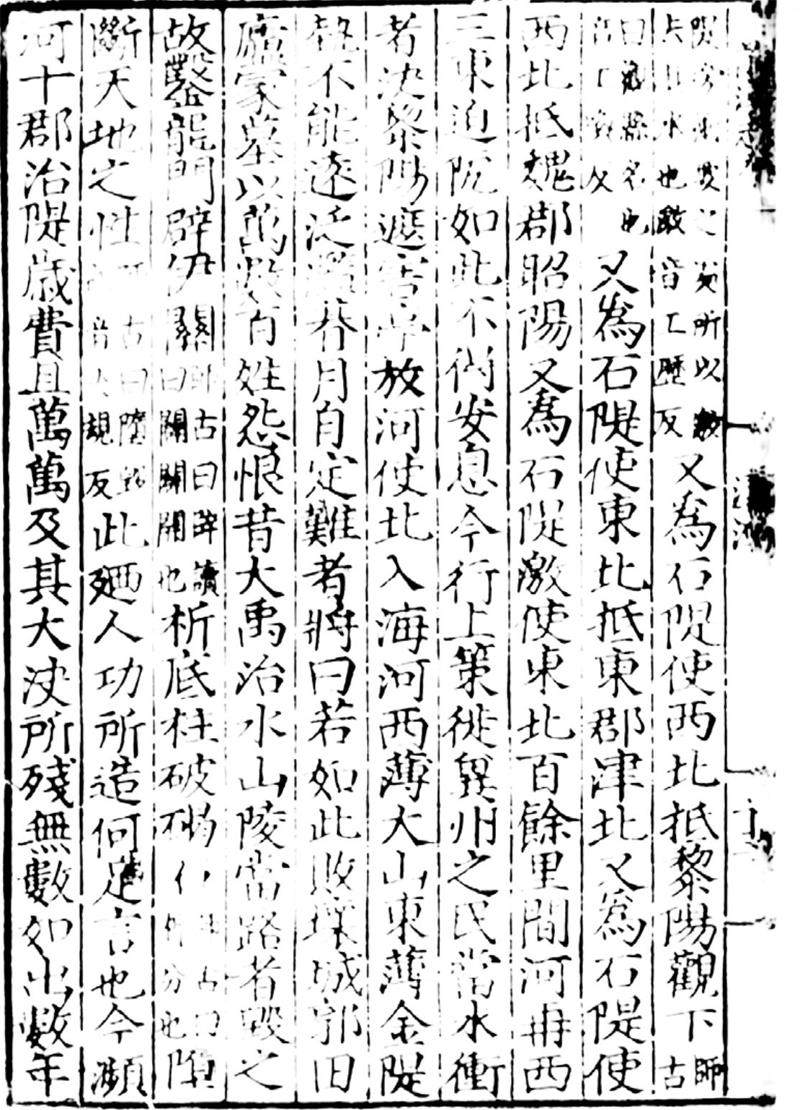 也激音工歷反又為石隄使西北抵黎陽觀下師古
曰觀縣名也又為石隄使東北抵東郡津北又為石隄使
西北抵魏郡昭陽又為石隄激使東北百餘里間河再西
三東迫阨如此不得安息今行上策徙冀州之民當水衝
者決黎陽遮害亭放河使北入海河西薄大山東薄金隄
埶不能遠泛濫朞月自定難者將曰若如此敗壞城郭田
廬冢墓以萬數百姓怨恨昔大禹治水山陵當路者毀之
故鑿龍門辟伊闕師古曰辟讀曰闢闢開也析底柱破碣析分也墮
斷天地之性師古曰墮毀也音火規反此廼人功所造何足言也今瀕
河十郡治隄歲費且萬萬及其大決所殘無數如出數年